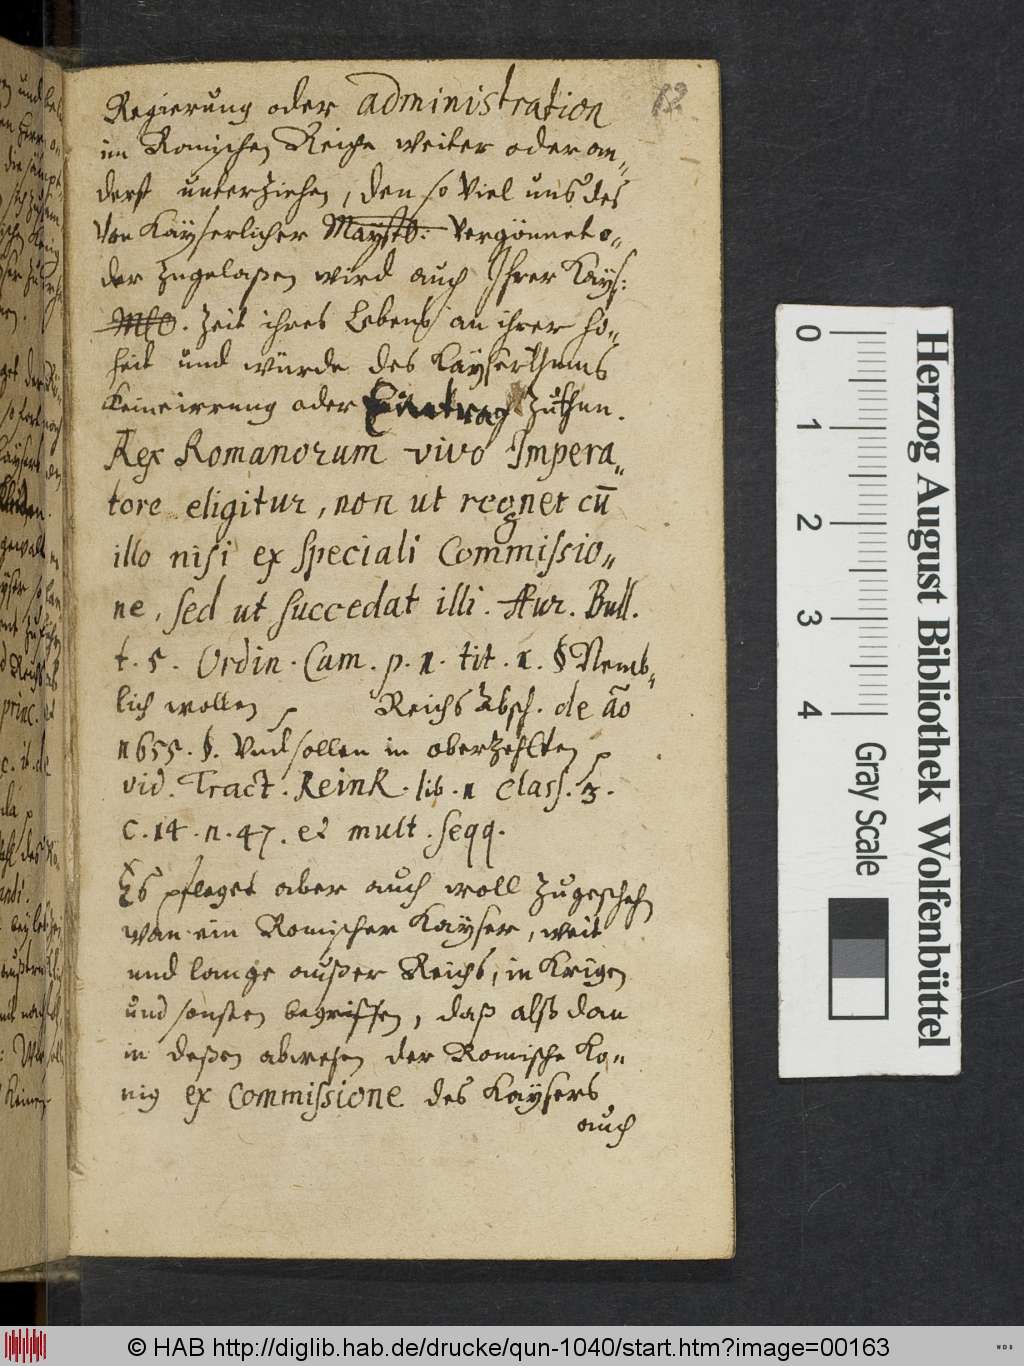 12
Regierung oder administration
im Romischen Reiche weiter oder an„
derst unterziehen, den so viel uns des
von Kayserlicher Maystt: vergönnet o„
der zugelaßen wird auch Ihrer Kays:
Mtt. Zeit ihres Lebens an ihrer ho„
heit und würde des Kayserthums
Keine irrung oder Eintrag zuthun.
Rex Romanorum vivo Impera„
tore eligitur, non ut regnet cū
illo nisi ex speciali Commissio„
ne, sed ut succedat illi. Aur. Bull.
t. 5. Ordin. Cam. p. 1. tit. 1. § Nemb„
lich wollen Reichs Absch. de aō
1655. §. Und sollen in oberzehlten
vid. Tract. Reink. lib. 1 class. 3.
c. 14. n. 47. et mult. seqq.
Es pfleget aber auch woll zugeschehn
wan ein Romischer Kayser, weit
und lange außer Reichs, in Krigen
und sonsten begriffen, daß alß dan
in deßen abwesen der Romische Ko„
nig ex Commissione des Kaysers
auch
0
1
2
3
4
Gray Scale
Herzog August Bibliothek Wolfenbüttel
© HAB http://diglib.hab.de/drucke/qun-1040/start.htm?image=00163